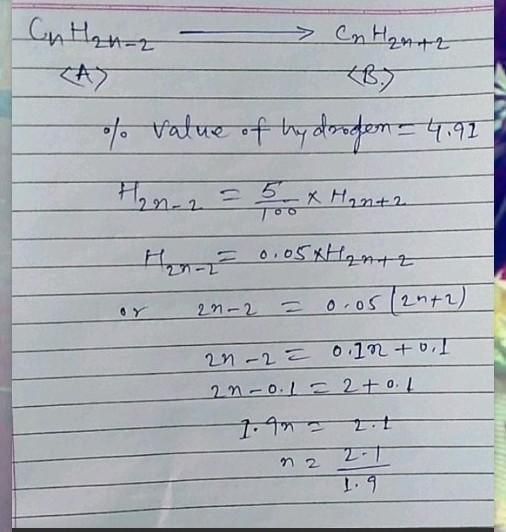 CnH2n-2 ⟶ CnH2n+2
<A> <B.>
% value of hydrogen = 4.91
H2n-2 = 5/100 × H2n+2
H2n-2 = 0.05×H2n+2
or 2n-2 = 0.05(2n+2)
2n-2 = 0.1n + 0.1
2n-0.1 = 2+0.1
1.9n = 2.1
n = 2.1/1.9